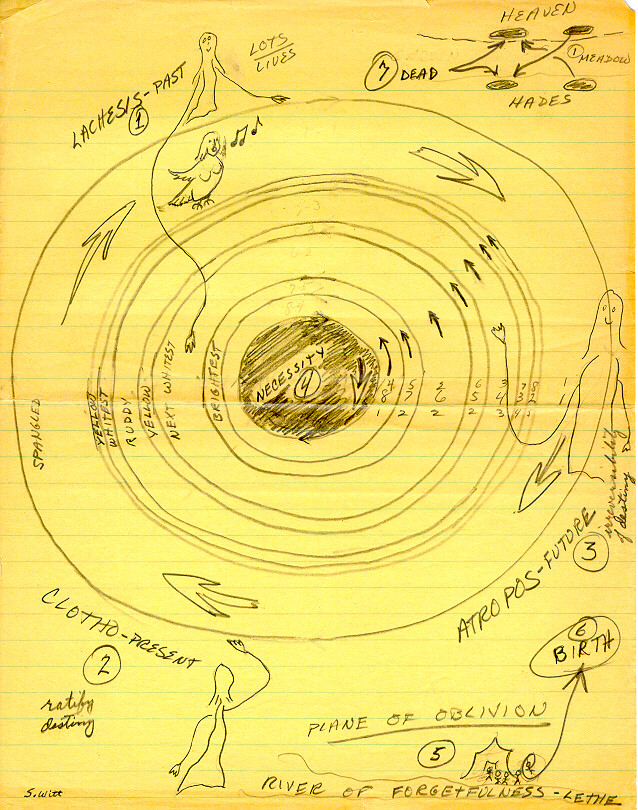 HEAVEN
LOTS
LIVES
① MEADOW
⑦ DEAD
HADES
LACHESIS-PAST
①
NECESSITY
④
SPANGLED
YELLOW
WHITEST
RUDDY
YELLOW
NEXT WHITEST
BRIGHTEST
4 5 2 6 3 7 8 1
8 7 6 5 4 3 2 1
1 2 2 2 3 4
irreversibility
of destiny
③
ATROPOS-FUTURE
CLOTHO-PRESENT
②
ratify
destiny
⑥
BIRTH
PLANE OF OBLIVION
⑤
RIVER OF FORGETFULNESS-LETHE
S. Witt